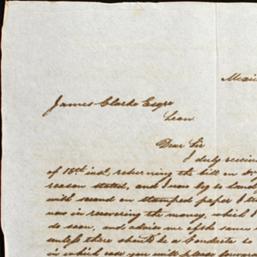 Mexi
James Clarke Esqre
Leon
Dear Sir
I duly receive
of 18th inst, returning the bill on
reason stated, and I now beg to hand
with second on stamped paper I
now in recovering the money, which I
do soon, and advise me of the same
unless there should be a Conducta
in which case you will please forward